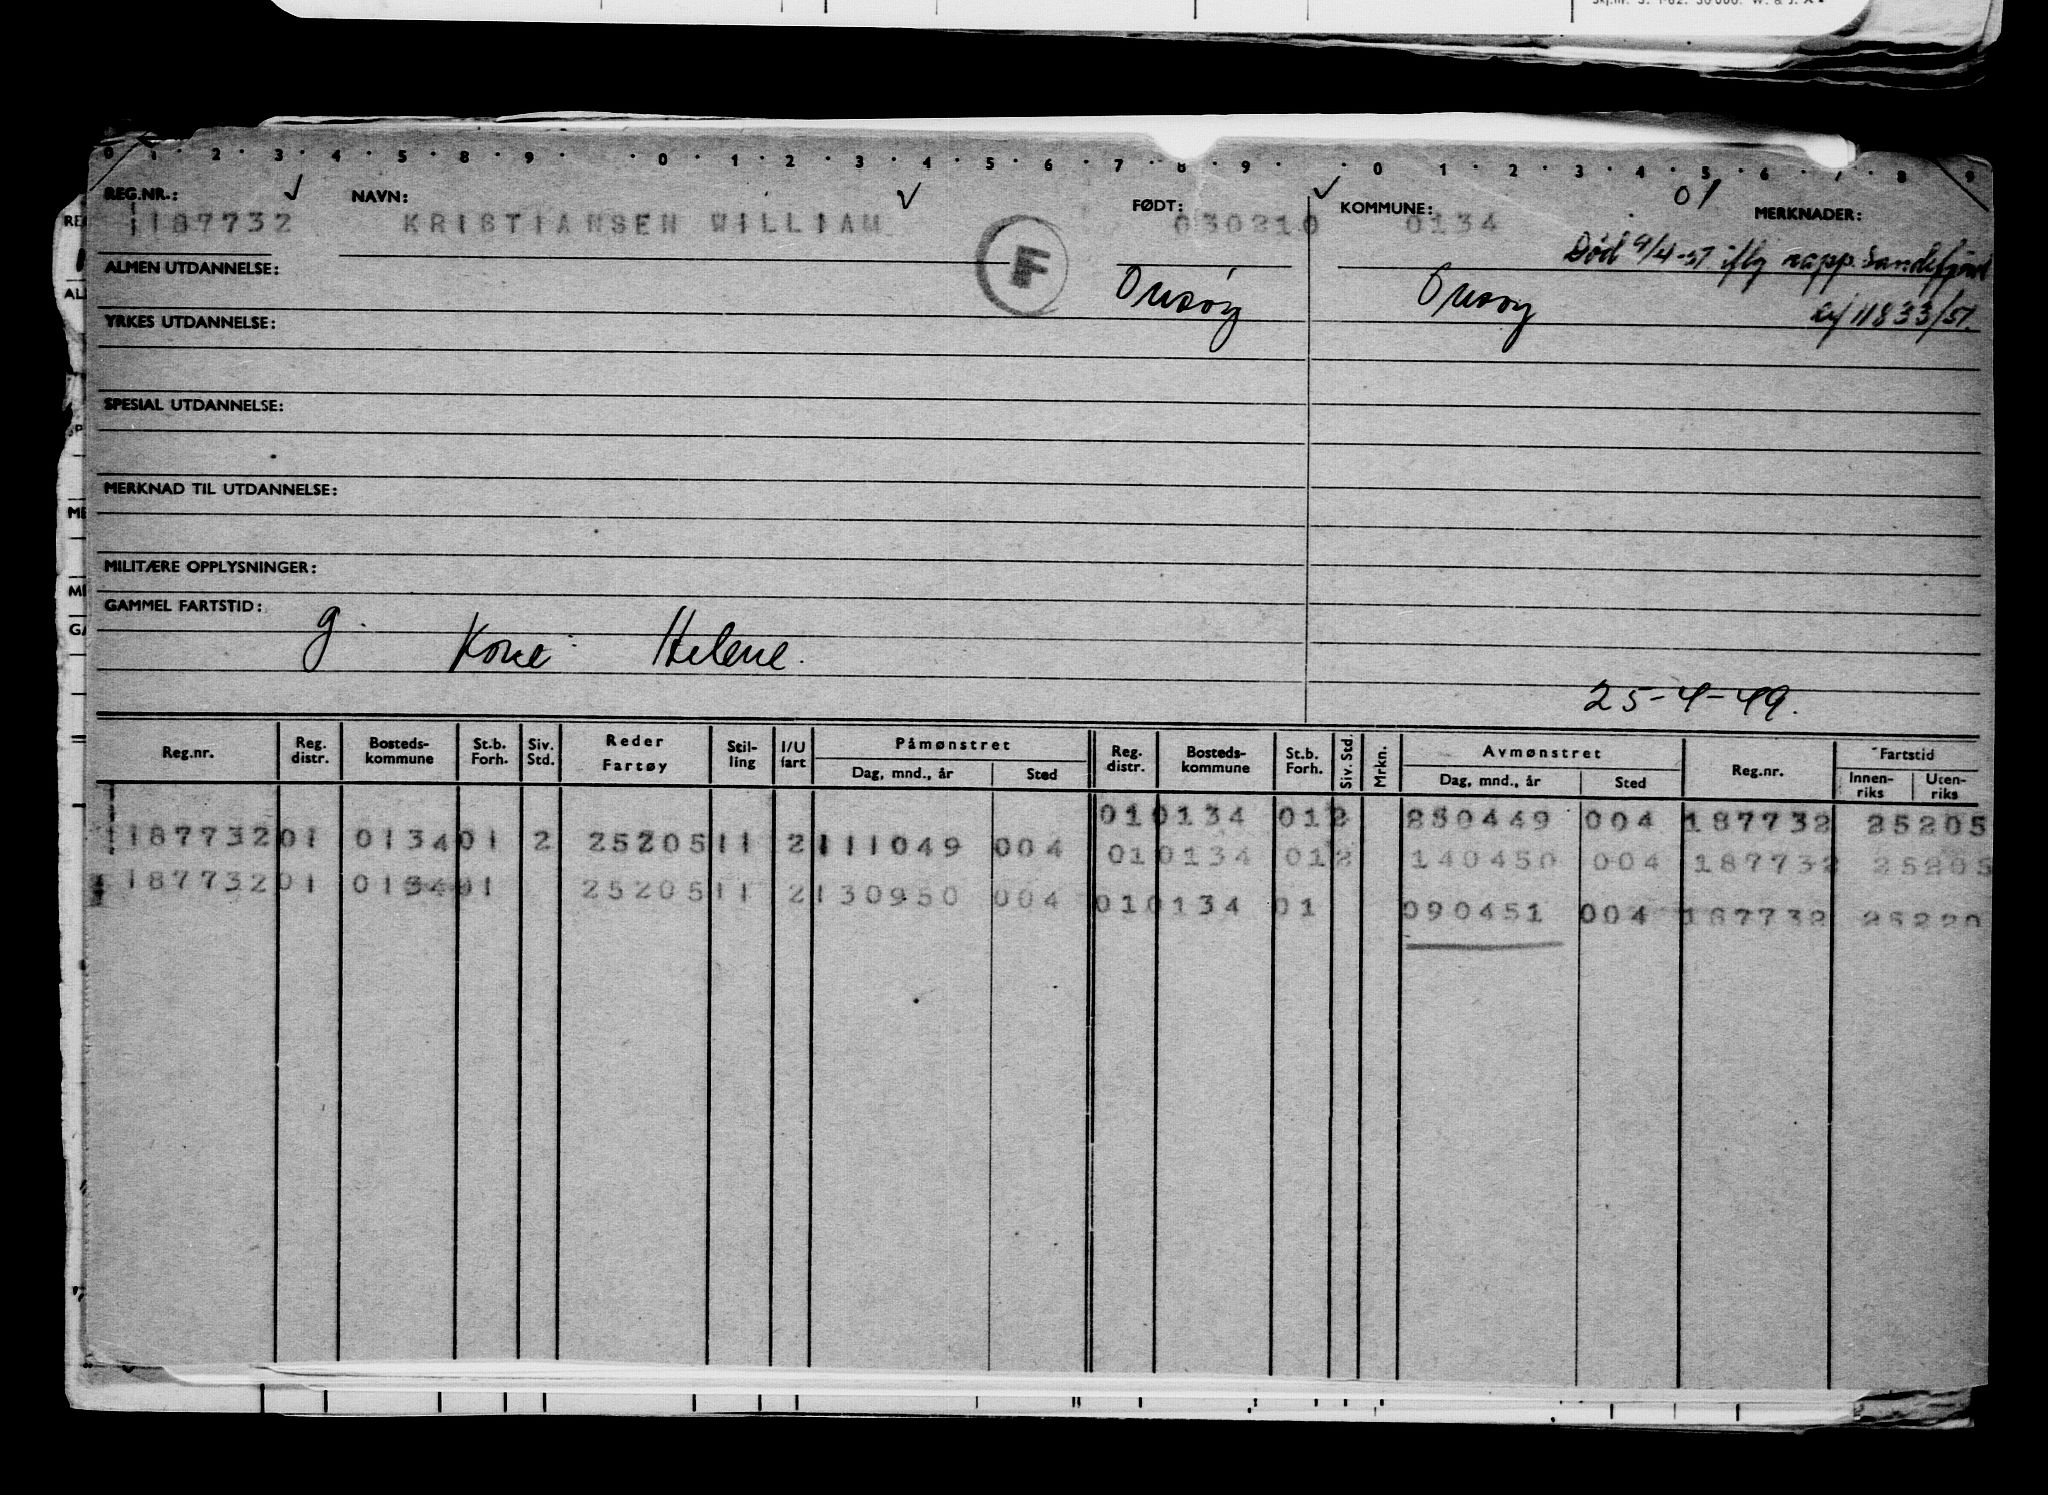 0 1 2 3 4 5 8 9 0 1 2 3 4 5 6 7 8 9 0 1 2 3 4 5 6 7 8 9
REG.NR.: NAVN: FØDT: KOMMUNE: 01 MERKNADER:
187732 KRISTIANSEN WILLIAM 030210 0134
F
Død 9/4-51 iflg rapp. Sandefjord
11833/51.
ALMEN UTDANNELSE:
Onsøy Onsøy
YRKES UTDANNELSE:
SPESIAL UTDANNELSE:
MERKNAD TIL UTDANNELSE:
MILITÆRE OPPLYSNINGER:
GAMMEL FARTSTID:
g. Kone: Helene.
25-4-49.
Reg.nr. Reg. distr. Bosteds-kommune St.b. Forh. Siv. Std. Reder Fartøy Stil-ling I/U fart Påmønstret Dag, mnd., år Sted Reg. distr. Bosteds-kommune St.b. Forh. Siv. Std. Mrkn. Avmønstret Dag, mnd., år Sted Reg.nr. Fartstid Innen-riks Uten-riks
01 0134 01 2 250449 004 187732 25205
187732 01 0134 01 2 25205 11 2 111049 004 01 0134 01 2 140450 004 187732 25205
187732 01 0134 01 25205 11 2 130950 004 01 0134 01 090451 004 187732 25220